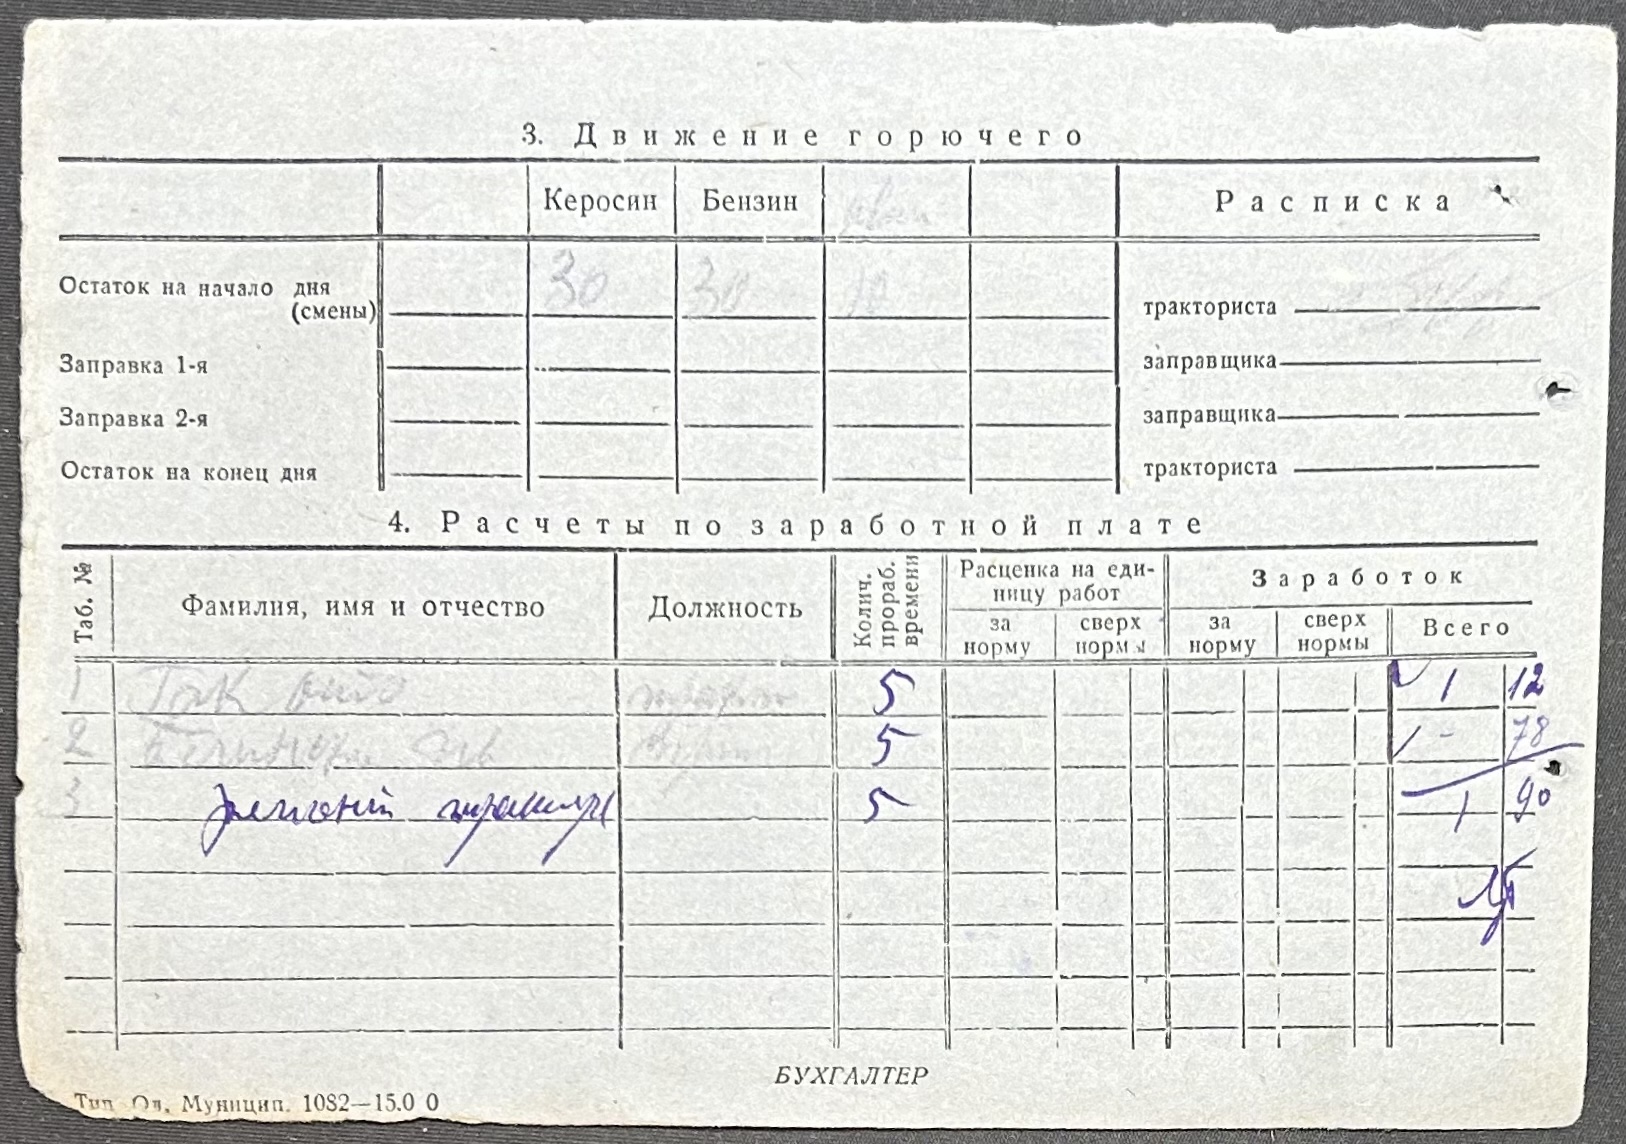 3. Движение горючего
Керосин Бензин Расписка
Остаток на начало дня
(смены) 30 30 10 тракториста
Заправка 1-я заправщика
Заправка 2-я заправщика
Остаток на конец дня тракториста
4. Расчеты по заработной плате
Таб. № Фамилия, имя и отчество Должность Колич. прораб. времени Расценка на еди-
ницу работ Заработок
за норму сверх нормы за норму сверх нормы Всего
1 5 1 12
2 5 - 78
3 5 1 90
БУХГАЛТЕР
Тип Од. Муницип. 1082—15.0 0